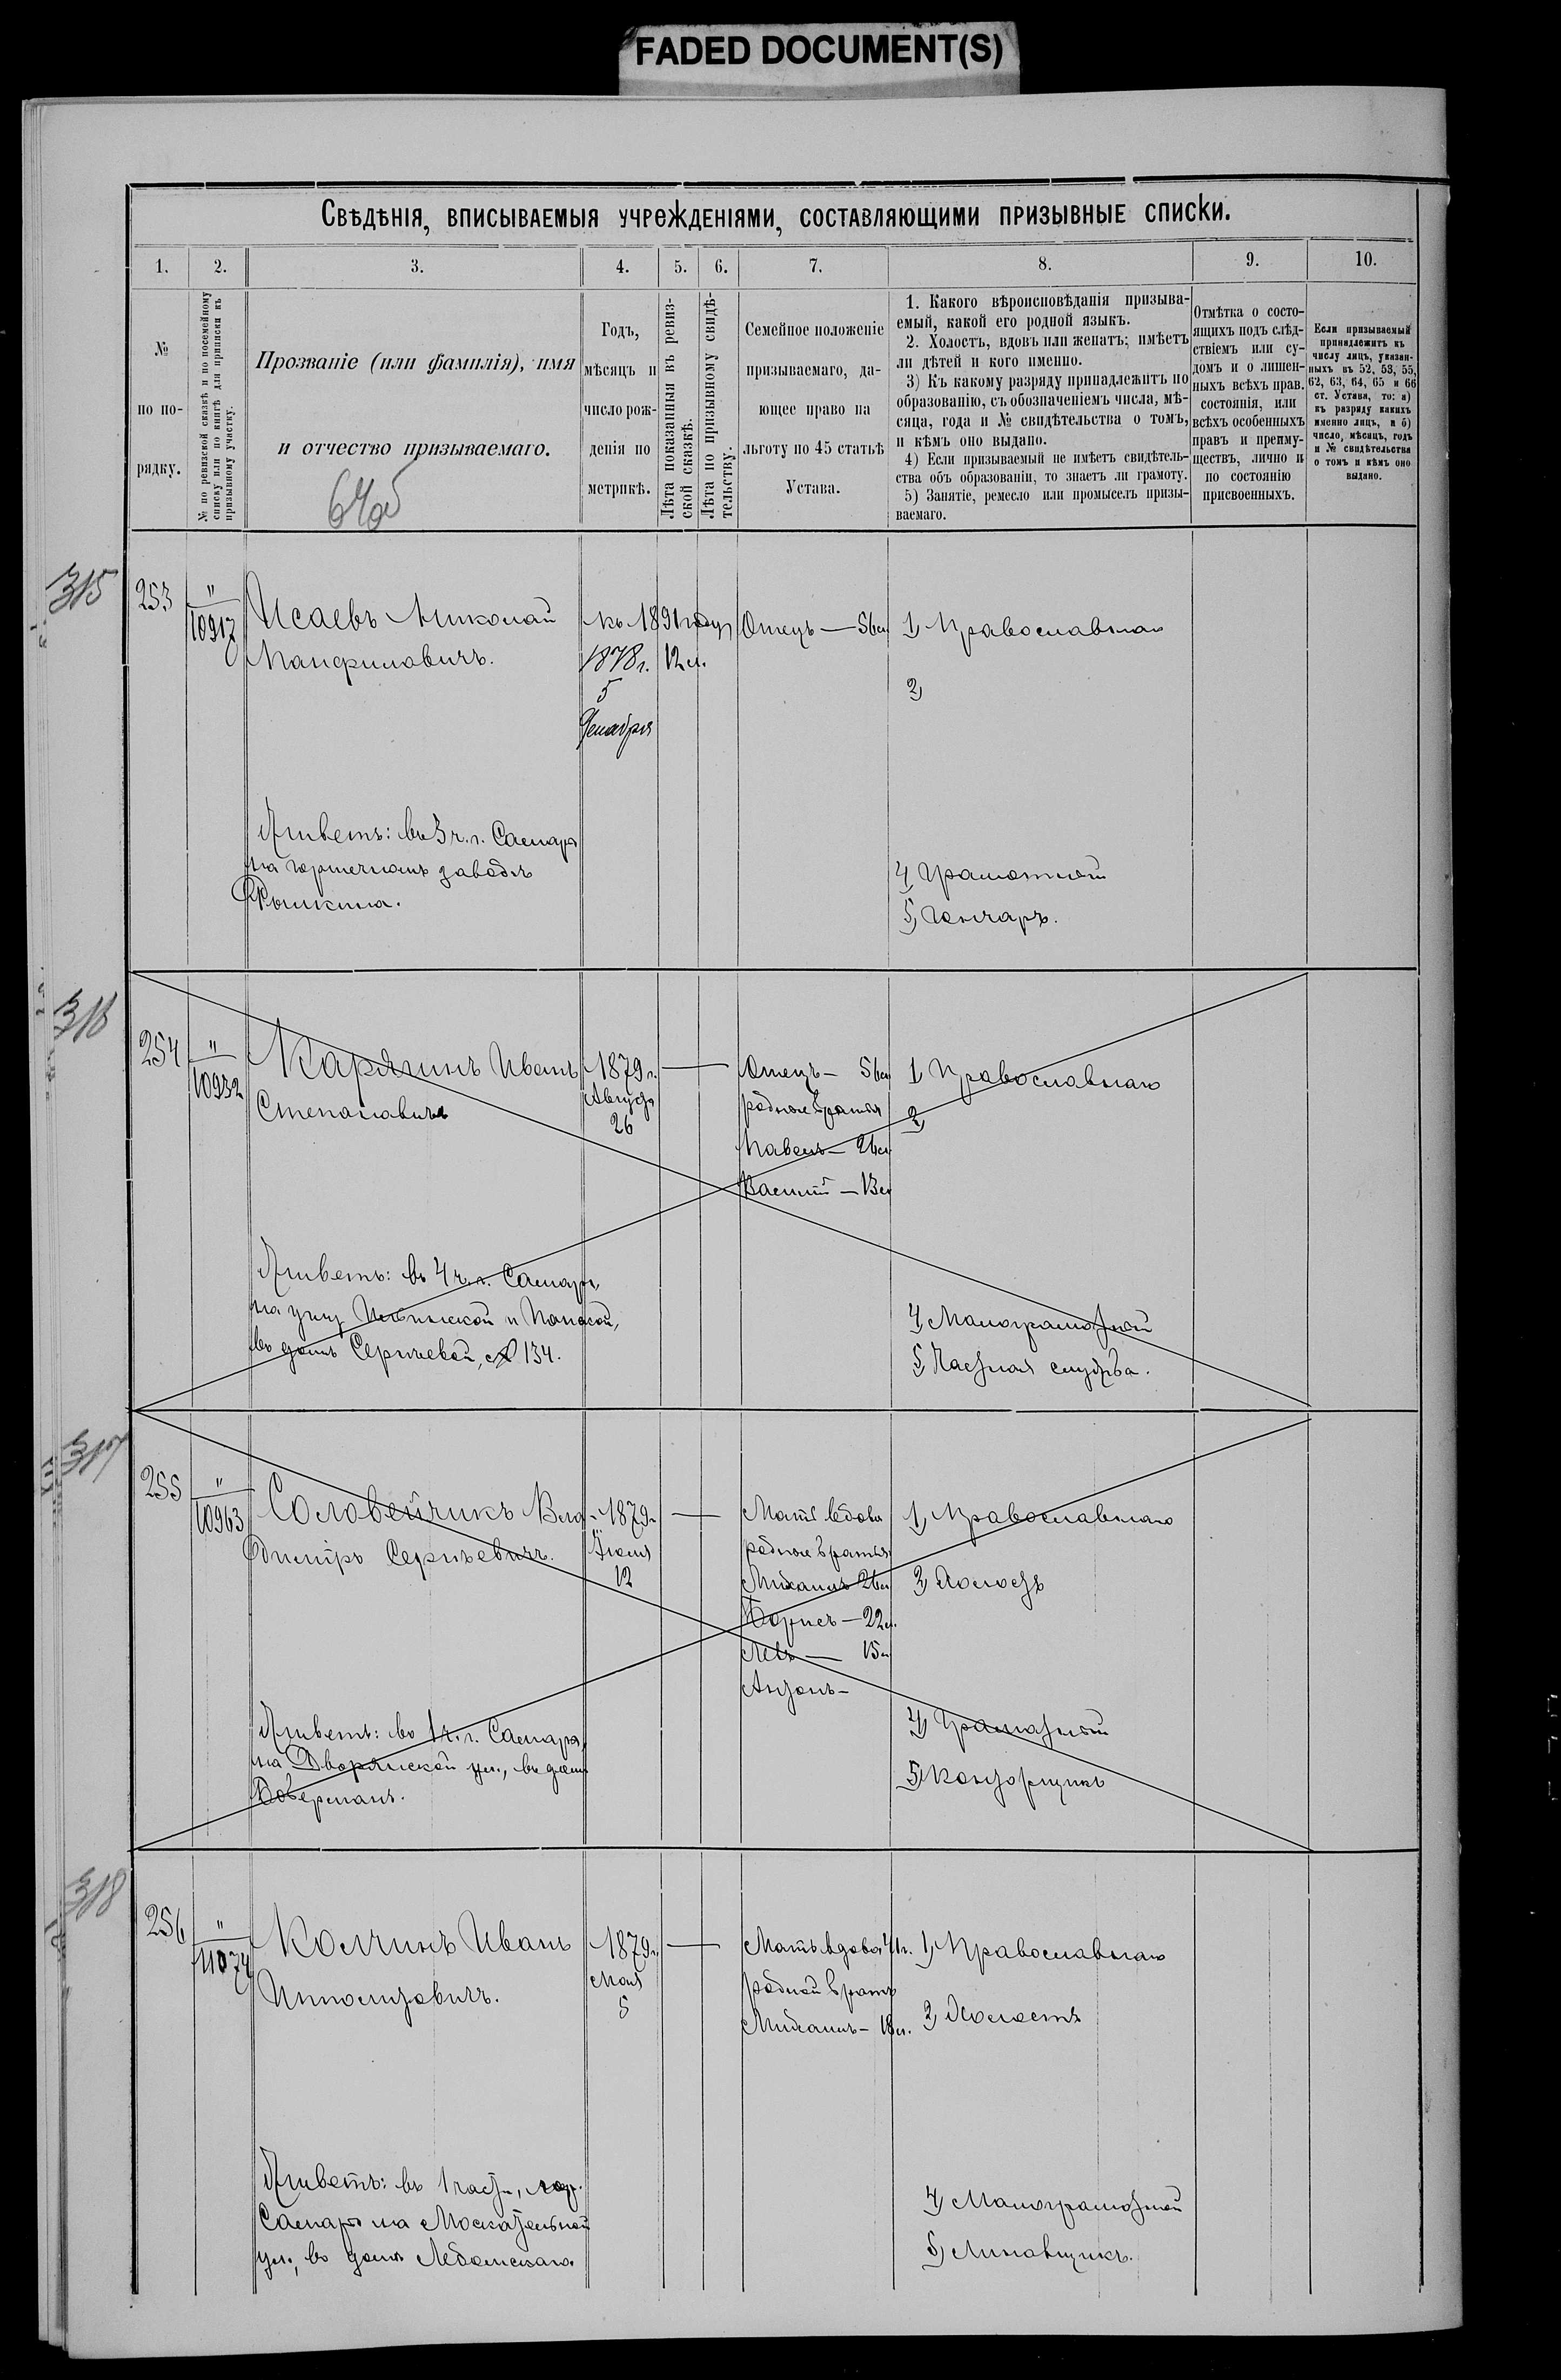 FADED DOCUMENT(S)
Свѣдѣнія, вписываемыя учрежденіями, составляющими призывные списки.
1. 2. 3. 4. 5. 6. 7. 8. 9. 10.
№
по по-
рядку.
№ по ревизской сказкѣ и по посемейному
списку или по книгѣ для приписки къ
призывному участку.
Прозваніе (или фамилія), имя
и отчество призываемаго.
Годъ,
мѣсяцъ и
число рож-
денія по
метрикѣ.
Лѣта показанныя въ ревиз-
ской сказкѣ.
Лѣта по призывному свидѣ-
тельству.
Семейное положеніе
призываемаго, да-
ющее право на
льготу по 45 статьѣ
Устава.
1. Какого вѣроисповѣданія призыва-
емый, какой его родной языкъ.
2. Холостъ, вдовъ или женатъ; имѣетъ
ли дѣтей и кого именно.
3) Къ какому разряду принадлежитъ по
образованію, съ обозначеніемъ числа, мѣ-
сяца, года и № свидѣтельства о томъ,
и кѣмъ оно выдано.
4) Если призываемый не имѣетъ свидѣтель-
ства объ образованіи, то знаетъ ли грамоту.
5) Занятіе, ремесло или промыселъ призы-
ваемаго.
Отмѣтка о состо-
ящихъ подъ слѣд-
ствіемъ или су-
домъ и о лишен-
ныхъ всѣхъ прав.
состоянія, или
всѣхъ особенныхъ
правъ и преиму-
ществъ, лично и
по состоянію
присвоенныхъ.
Если призываемый
принадлежитъ къ
числу лицъ, указан-
ныхъ въ 52, 53, 55,
62, 63, 64, 65 и 66
ст. Устава, то: а)
къ разряду какихъ
именно лицъ, и б)
число, мѣсяцъ, годъ
и № свидѣтельства
о томъ и кѣмъ оно
выдано.
315
253
"
10917
Исаевъ Николай
Панфиловичъ.
къ 1891 году
1878 г. 12 л.
5
Декабря
Отецъ — 56 л
1, Православнаго
2,
Живетъ: въ 3 ч. г. Самары
на горшечномъ заводѣ
4, Грамотный
5, Гончаръ.
316
254
"
10932
Карякинъ Иванъ
Степановичъ
1879 г.
Августа
26
Отецъ — 56 л
родные братья
Павелъ — 24 л
Василій — 13 л
1, Православнаго
2,
Живетъ: въ 4 ч. г. Самары,
на углу и
въ домѣ Сергѣевой, № 134.
4, Малограмотный
5, Частная служба.
317
255
"
10963
Соловейчикъ Вла
диміръ Сергѣевичъ.
1879 г
12
Мать вдова
родные братья
Михаилъ 26 л
Борисъ — 22 л.
Левъ — 15 л
Антонъ —
1, Православнаго
2, Холостъ
Живетъ: въ 1 ч. г. Самары,
на Дворянской ул., въ домѣ
4, Грамотный
5, Конторщикъ
318
256
"
11074
Колчинъ Иванъ
Ипполитовичъ.
1879 г
Мая
5
Мать вдова 41 г.
родной братъ
Михаилъ — 18 л.
1, Православнаго
2, Холостъ
Живетъ: въ 1 части, гор.
Самары на Москательной
ул., въ домѣ
4, Малограмотный
5,